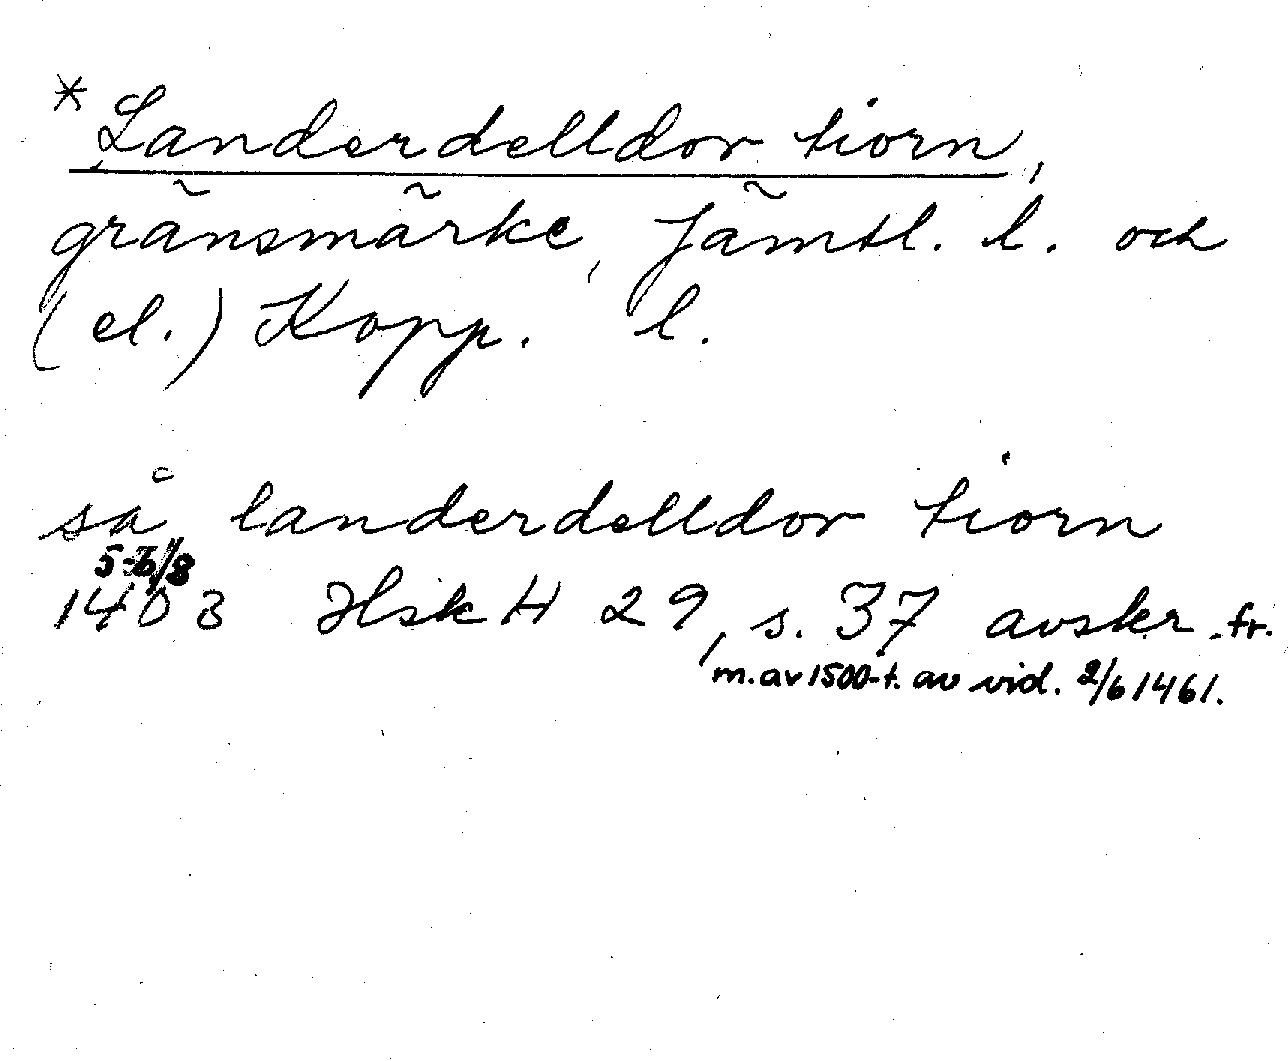 *Landerdelldor tiorn,
gränsmärke, Jämtl. l. och
(el.) Kopp. l.
så landerdelldor tiorn
5-6/8
1403 Hsk H 29, s. 37 avskr. fr.
m. av 1500-t. av vid. 2/6 1461.